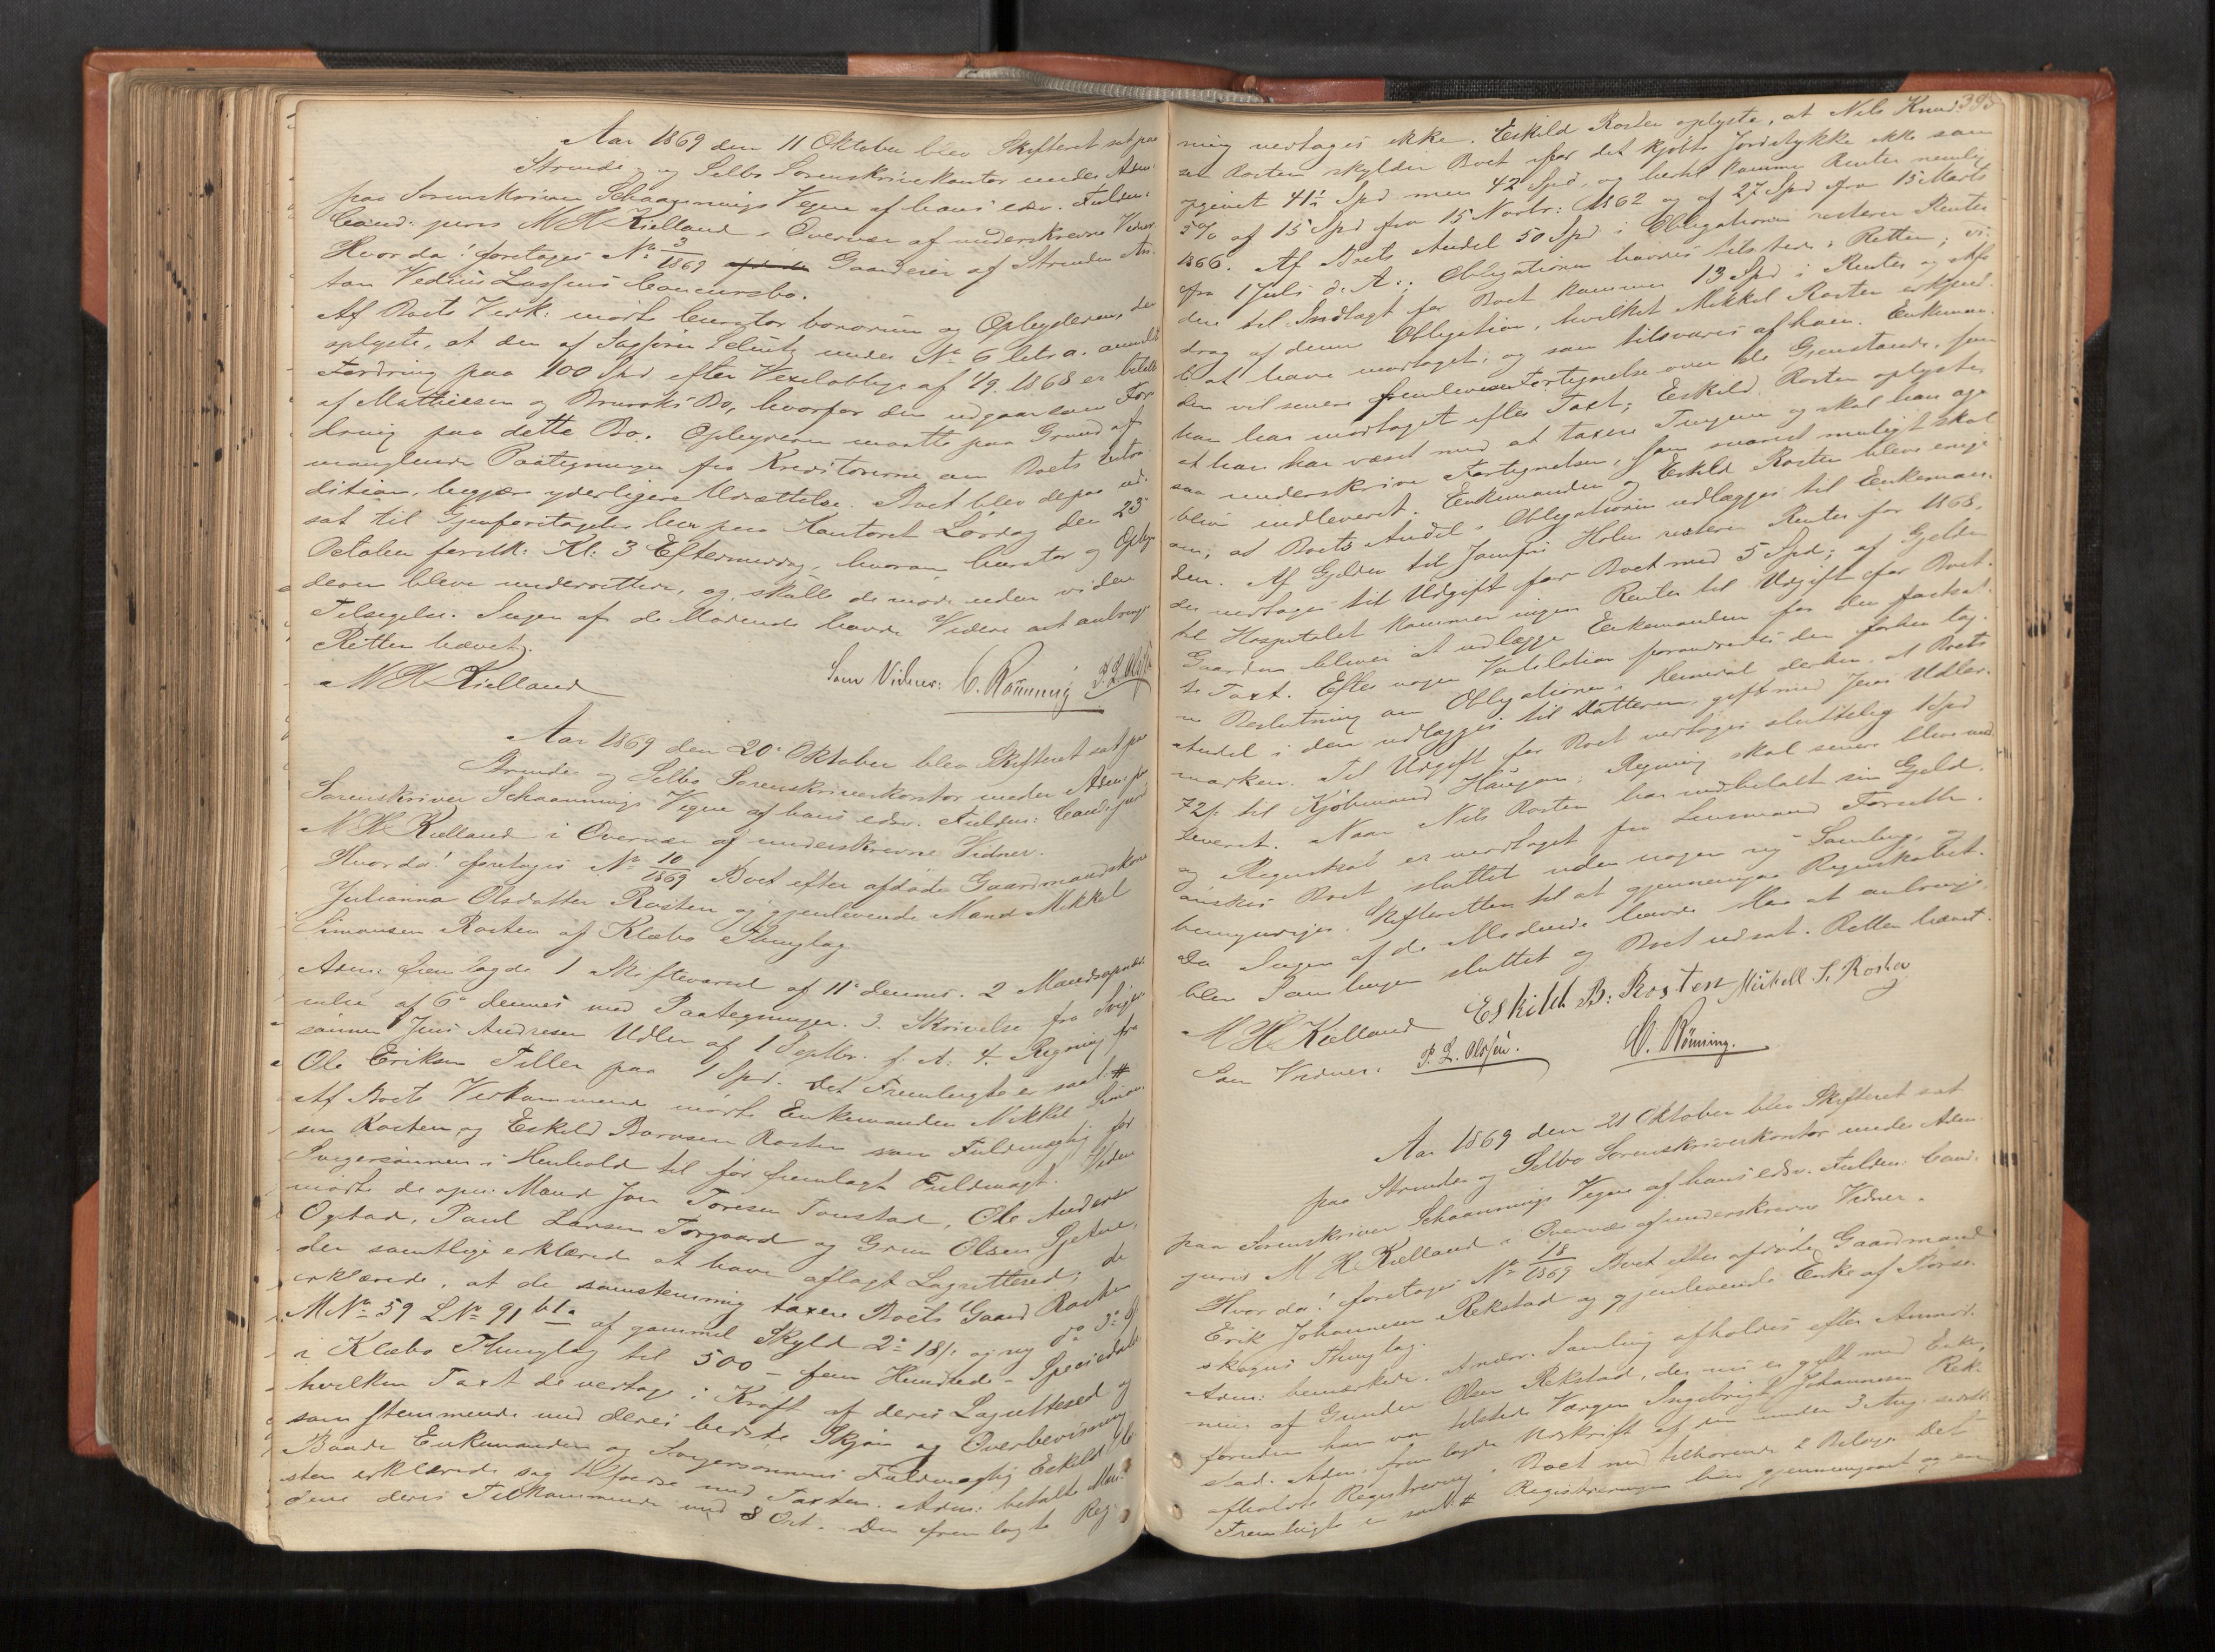 Aar 1869 den 11 Oktober blev Skifteret sat paa
Strinde og Selbo Sorenskriverkontor under Adm:
paa Sorenskriver Schaannings Vegne af hans edsv. Fuldm:
Cand: juris M H Kielland i Overvær af underskrevne Vidner
Hvor da! foretages No 3/1869 Gaardeier af Strinden An-
ton Vedius Lassens Concursbo.
Af Boets Vedk: mødte Curator bonorum og Opbyderen, der
oplyste, at den af Sagfører Schultz under No 6 litr a. anmeldt
Fordring paa 100 Spd efter Vexelobliga af 1/9 1868 er betalt
af Mathiesen og Bo, hvorfor den udgaar som For
dring paa dette Bo. Opbyderen maatte paa Grund af
manglende Paategninger fra Kreditorerne om Boets Extra-
dition, begjære yderligere Udsættelse. Boet blev derpaa ud-
sat til Gjenforetagelse her paa Kontoret Lørdag den 23
October førstk: Kl: 3 Eftermiddag, hvorom Curator og Opby
deren bleve underrettede, og skulle de møde uden videre
Tilsigelse. Ingen af de Mødende havde Videre at anbringe
Retten hævet.
M H Kielland
Som Vidner: C. Rønning P. L. Olsen
Aar 1869 den 20 Oktober blev Skifteret sat paa
Strinde og Selbo Sorenskriverkontor under Adm: paa
Sorenskriver Schaannings Vegne af hans edsv. Fuldm: Cand: juris
M H Kielland i Overvær af underskrevne Vidner.
Hvor da! foretages No 10/1869 Boet efter afdøde Gaardmandskone
Julianna Olsdatter Rosten og gjenlevende Mand Mikkel
Simonsen Rosten af Klæbo Thinglag
Adm: fremlagde 1 Skiftevarsel af 11 dennes. 2 Mandsopnæv-
nelse af 6 dennes med Paategninger. 3. Skrivelse fra Sviger
sønnen Jens Andresen Udler af 1 Septbr. d. A. 4. Regning fra
Ole Eriksen Tiller paa 1 Spd. Det Fremlagte er saal: #
Af Boets Vedkommende mødte Enkemanden Mikkel Simon-
sen Rosten og Eskild Rosten som Fuldmægtig for
Svigersønnen i Henhold til før fremlagt Fuldmagt. Viden
mødte de opn: Mænd Jon Toresen Tonstad, Ole Anderse
Ogstad, Paul Larsen Torgaard og Grim Olsen
der samtlige erklærede at have aflagt Lagrettesed; de
erklærede, at de samstemmig taxere Boets Gaard Rosten
M No 59 L No 91 bla af gammel Skyld 2 18/. og ny
i Klæbo Thinglag til 500 - fem Hundrede - Speciedaler
hvilken Taxt de vedtage i Kraft af deres Lagrettesed og
som stemmende med deres bedste Skjøn og Overbevisning
Baade Enkemanden og Svigersønnens Fuldmægtig Eskild Ro-
sten erklærede sig tilfredse med Taxten. Adm: betalte Mæn-
dene deres Tilkommende med 8 Ort. Den fremlagte Reg-
395
ning vedtages ikke. Eskild Rosten oplyste, at Nils Knud-
sen Rosten skylder Boet for det kjøbte Jordstykke ikke som
opgivet 41½ Spd men 42 Spd, og hertil kommer Renter nemlig
5% af 15 Spd fra 15 Novbr: 1862 og af 27 Spd fra 15 Marts
1866. Af Boets Andel 50 Spd i Obligationen resterer Renter
fra 1 Juli d. A.; Obligationen havdes tilstede i Retten;
den til Indtægt for Boet kommer 13 Spd i Renter og Af-
drag af denne Obligation, hvilket Mikkel Rosten erkjend-
te at have modtaget, og som tilsvares af ham. Enkeman-
den vil senere fremlevere Fortegnelse over de Gjenstande, som
han har modtaget efter Taxt; Eskild Rosten oplyste,
at han har været med at taxere Tingene og skal han og-
saa underskrive Fortegnelsen, som snarest muligt skal
blive indleveret. Enkemanden og Eskild Rosten bleve enige
om, at Boets Andel i Obligationen udlægges til Enkeman-
den. Af Gjelden til Jomfru Holm resterer Renter for 1868,
der vedtages til Udgift for Boet med 5 Spd; af Gjelden
til Hospitalet kommer ingen Renter til Udgift for Boet.
Gaarden bliver at udlægge Enkemanden for den fastsat-
te Taxt. Efter nogen Ventilation forandredes den forhen tag-
ne Beslutning om Obligationen i Henseende derhen, at Boets
Andel i den udlægges til Datteren, gift med Jens Udler.
marken. Til Udgift for Boet vedtages sluttelig 1 Spd
72/. til Kjøbmand Haugan. Regning skal senere blive ind-
leveret. Naar Nils Rosten har indbetalt sin Gjeld
og Regnskab er modtaget fra Lensmand Forseth.
ønskes Boet sluttet uden nogen ny Samling, og
bemyndiges Skifteretten til at gjennemgaa Regnskabet.
Da Ingen af de Mødende havde Mere at anbringe,
blev Samlingen sluttet og Boet udsat. Retten hævet.
M H Kielland Eskild B: Rosten Mikkell S. Rosten
Som Vidner: P. L. Olsen. C. Rønning.
Aar 1869 den 21 Oktober blev Skifteret sat
paa Strinde og Selbo Sorenskriverkontor under Adm
paa Sorenskriver Schaannings Vegne af hans edsv. Fuldm: Cand:
juris M H Kielland i Overvær af underskrevne Vidner.
Hvor da! foretages No 18/1869 Boet efter afdøde Gaardmand
Erik Johannesen Rekstad og gjenlevende Enke af Børse-
skogns Thinglag.
Adm: bemærkede. Anden Samling afholdes efter Anmod-
ning af Gunder Olsen Rekstad, der nu er gift med Enken,
foruden ham var tilstede Værgen Ingebrigt Johannesen Rek-
stad. Adm. fremlagde Udskrift af en under 3 Aug. sidstl.
afholdt Registrering i Boet med tilhørende 2 Bilage. Det
Fremlagte er saal: # Registreringen blev gjennemgaaet og